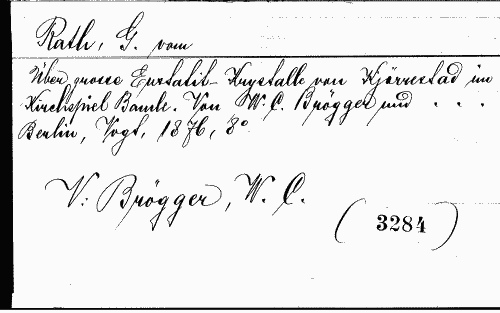 Rath, G. vom
Über grosse Enstatit-Krystalle von Kjörrestad im
Kirchspiel Bamle. Von W. C. Brögger und . . .
Berlin, Vogt, 1876, 8°
V: Brögger, W. C.
(3284)